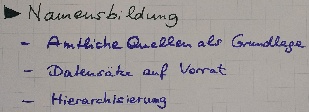 ► Namensbildung
- Amtliche Quellen als Grundlage
- Datensätze auf Vorrat
- Hierarchisierung